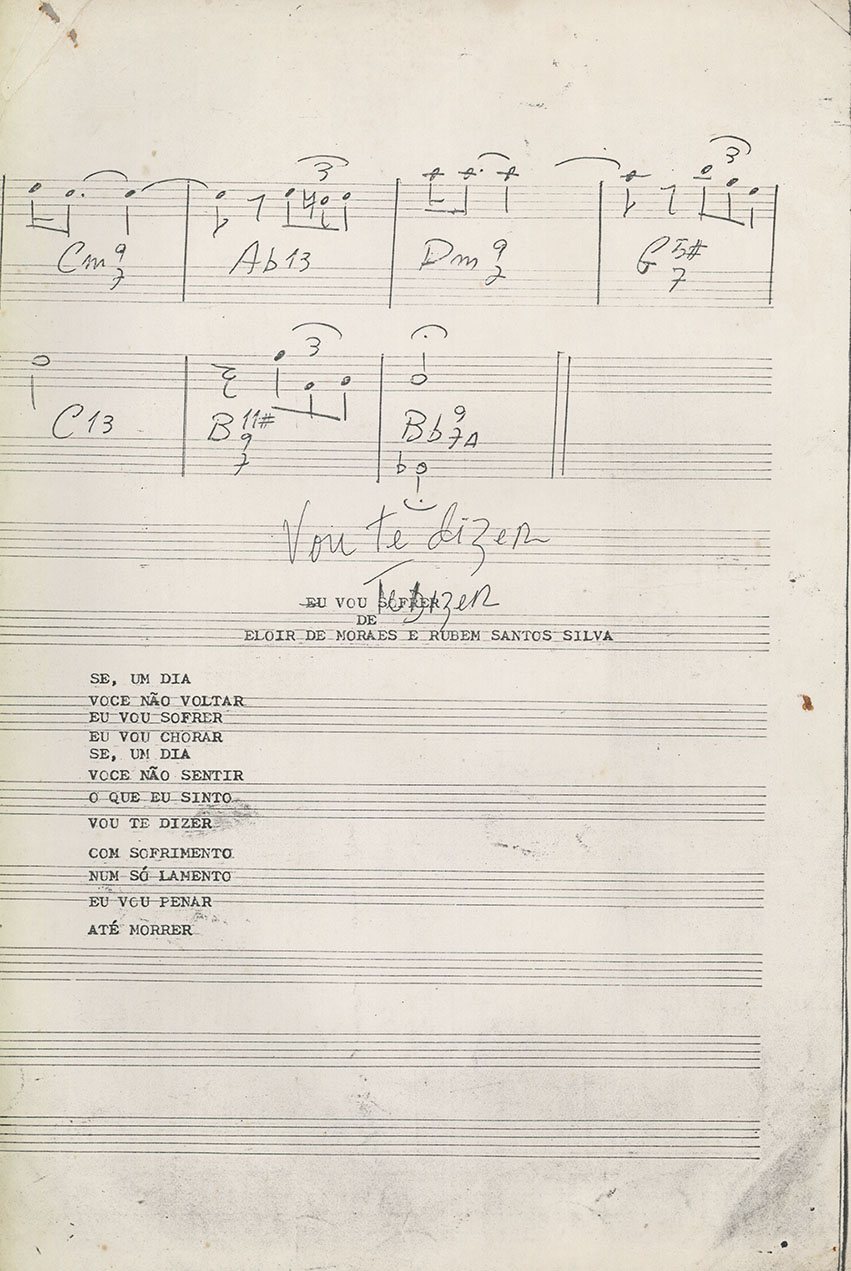 3 3
Cm 9 7 Ab13 Dm 9 7 G 5# 7
3
C13 B 11# 9 7 Bb 9 7A
b
Vou te dizer
EU VOU SOFRER Te Dizer
DE
ELOIR DE MORAES E RUBEM SANTOS SILVA
SE, UM DIA
VOCE NÃO VOLTAR
EU VOU SOFRER
EU VOU CHORAR
SE, UM DIA
VOCE NÃO SENTIR
O QUE EU SINTO
VOU TE DIZER
COM SOFRIMENTO
NUM SÓ LAMENTO
EU VOU PENAR
ATÉ MORRER